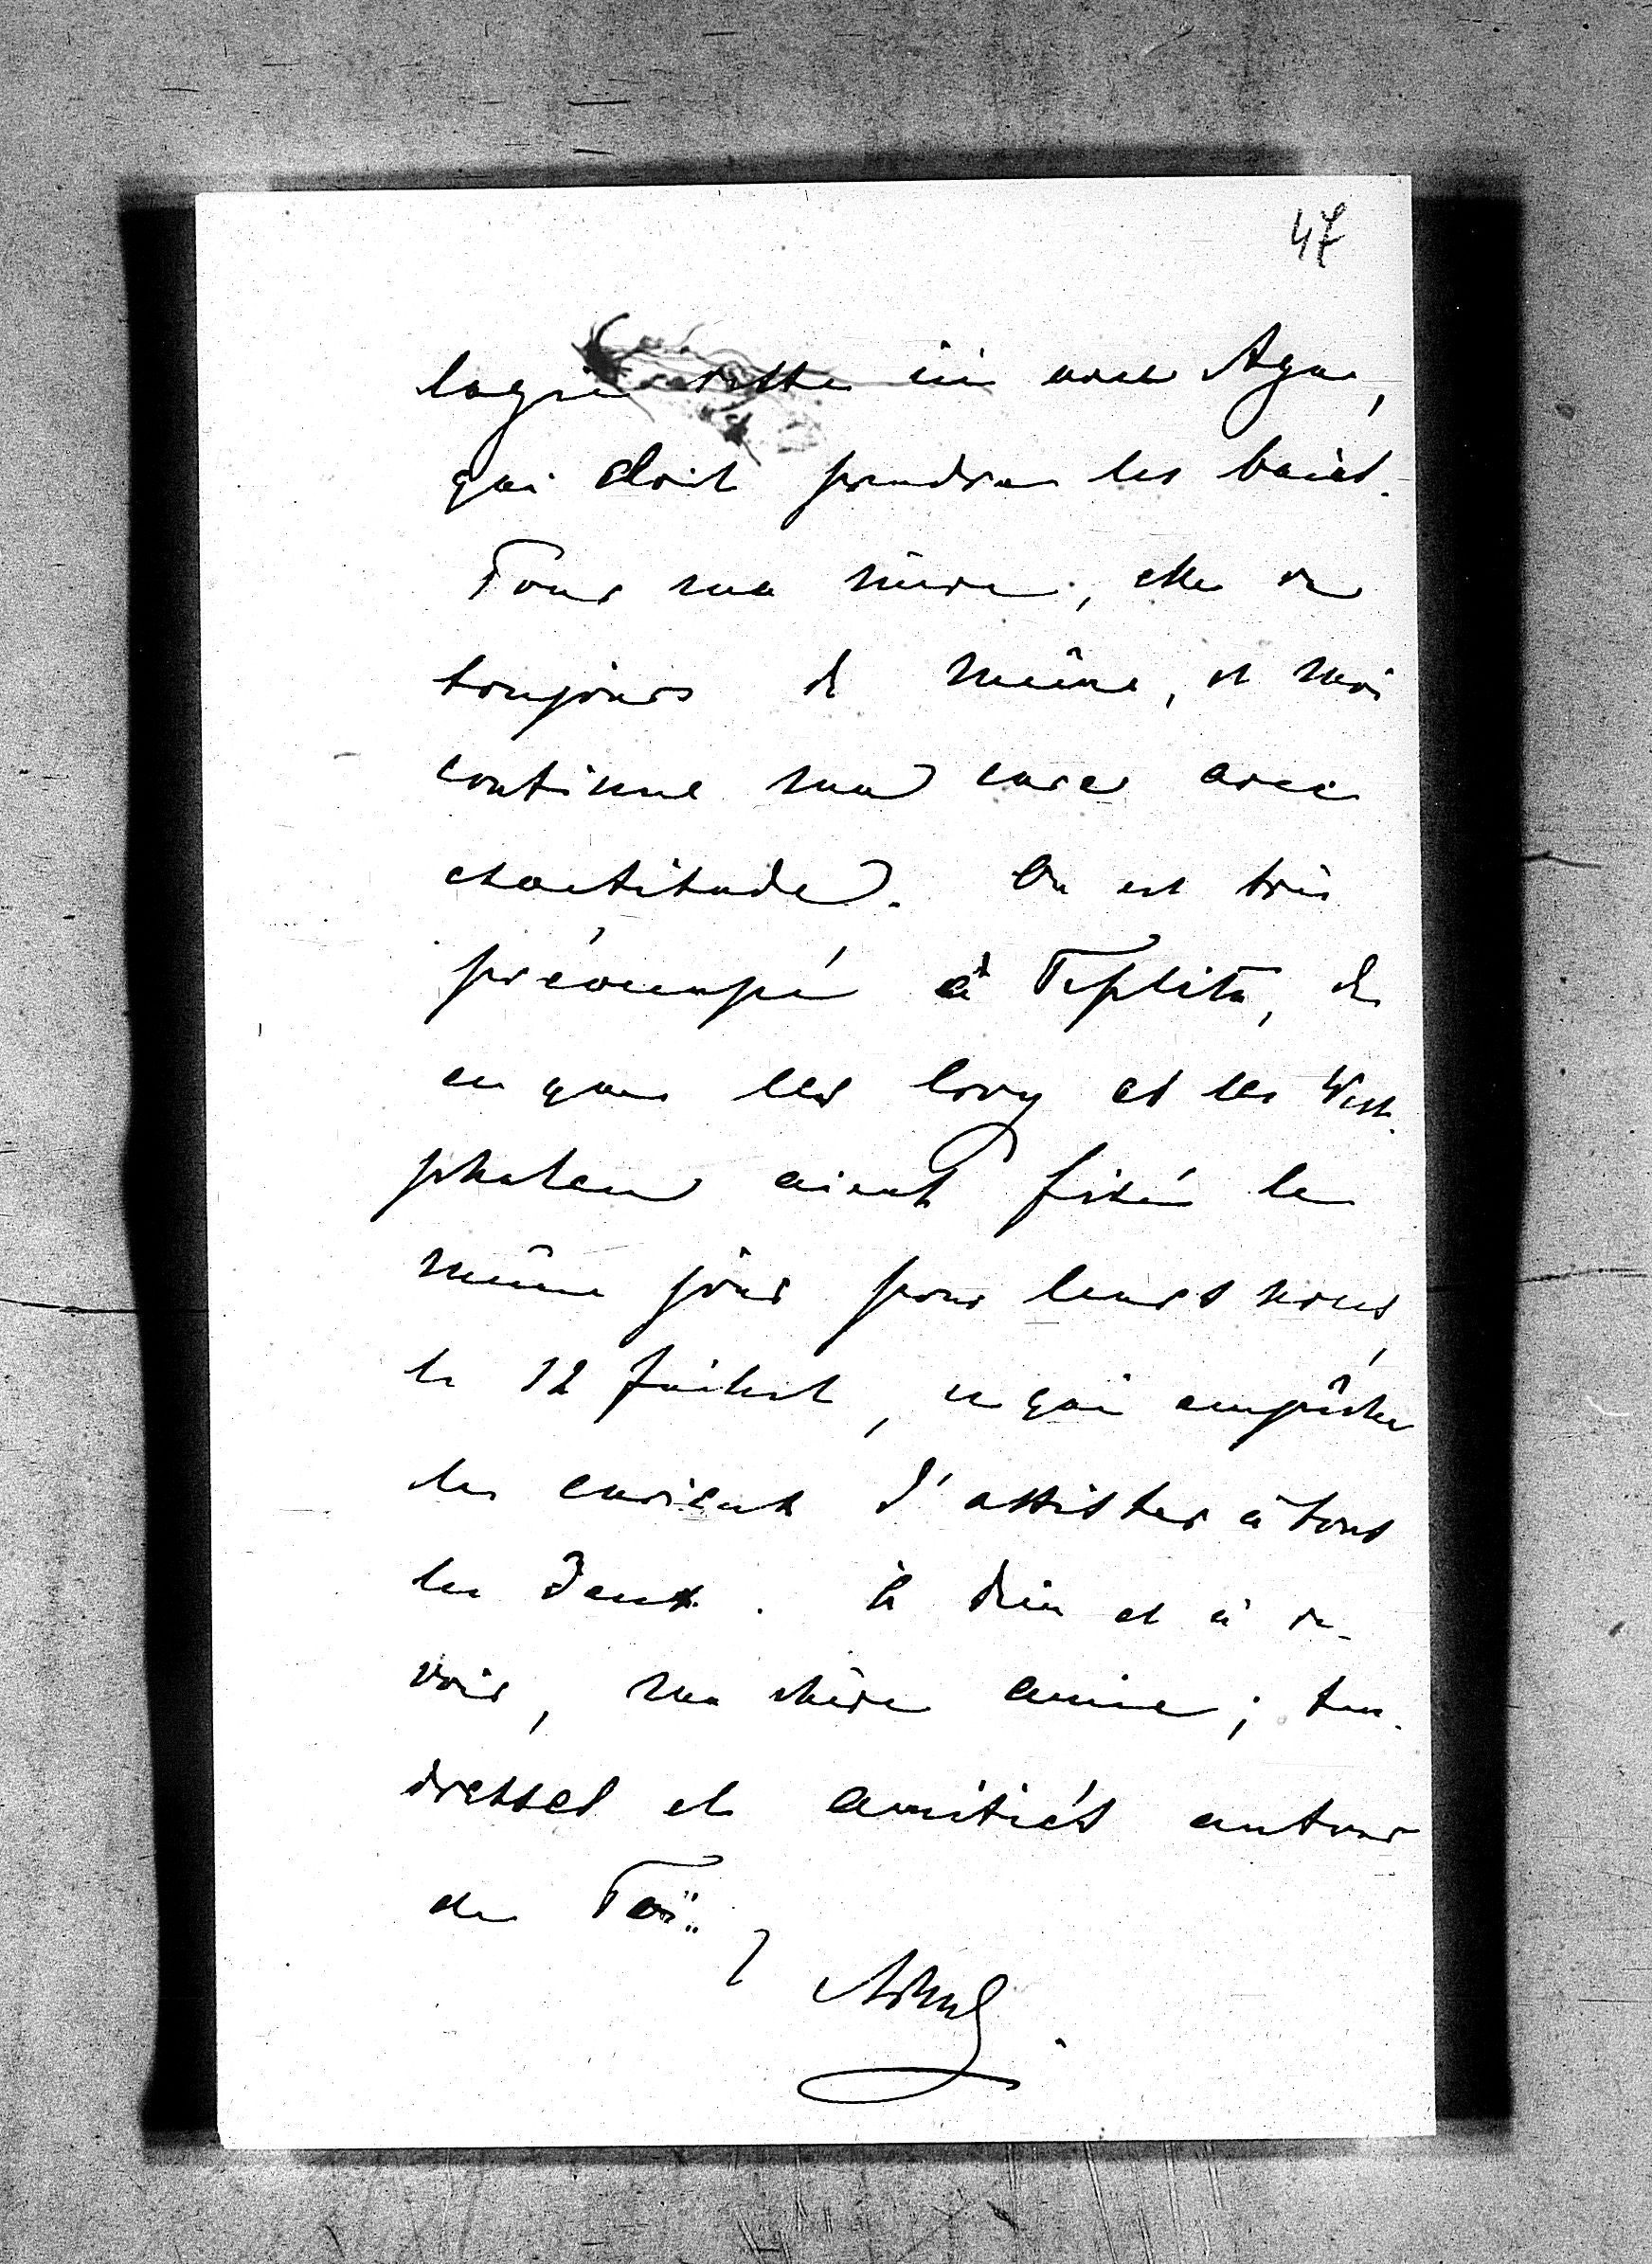 47
reste ici avec Agar,
qui doit prendre les bains.
Pour ma mère, elle va
toujours de même, et moi
continue ma cure avec
exactitude. On est très
préoccupé à Teplitz, de
ce que les Levy et les West-
phalen aient fixés le
même jour pour leurs noces,
le 12 Juillet, ce qui empêche
les curieux d'assister à tous
les deux. à Dieu et à re-
voir, ma chère amie; ten-
dresses et amitiés autour
de Toi.